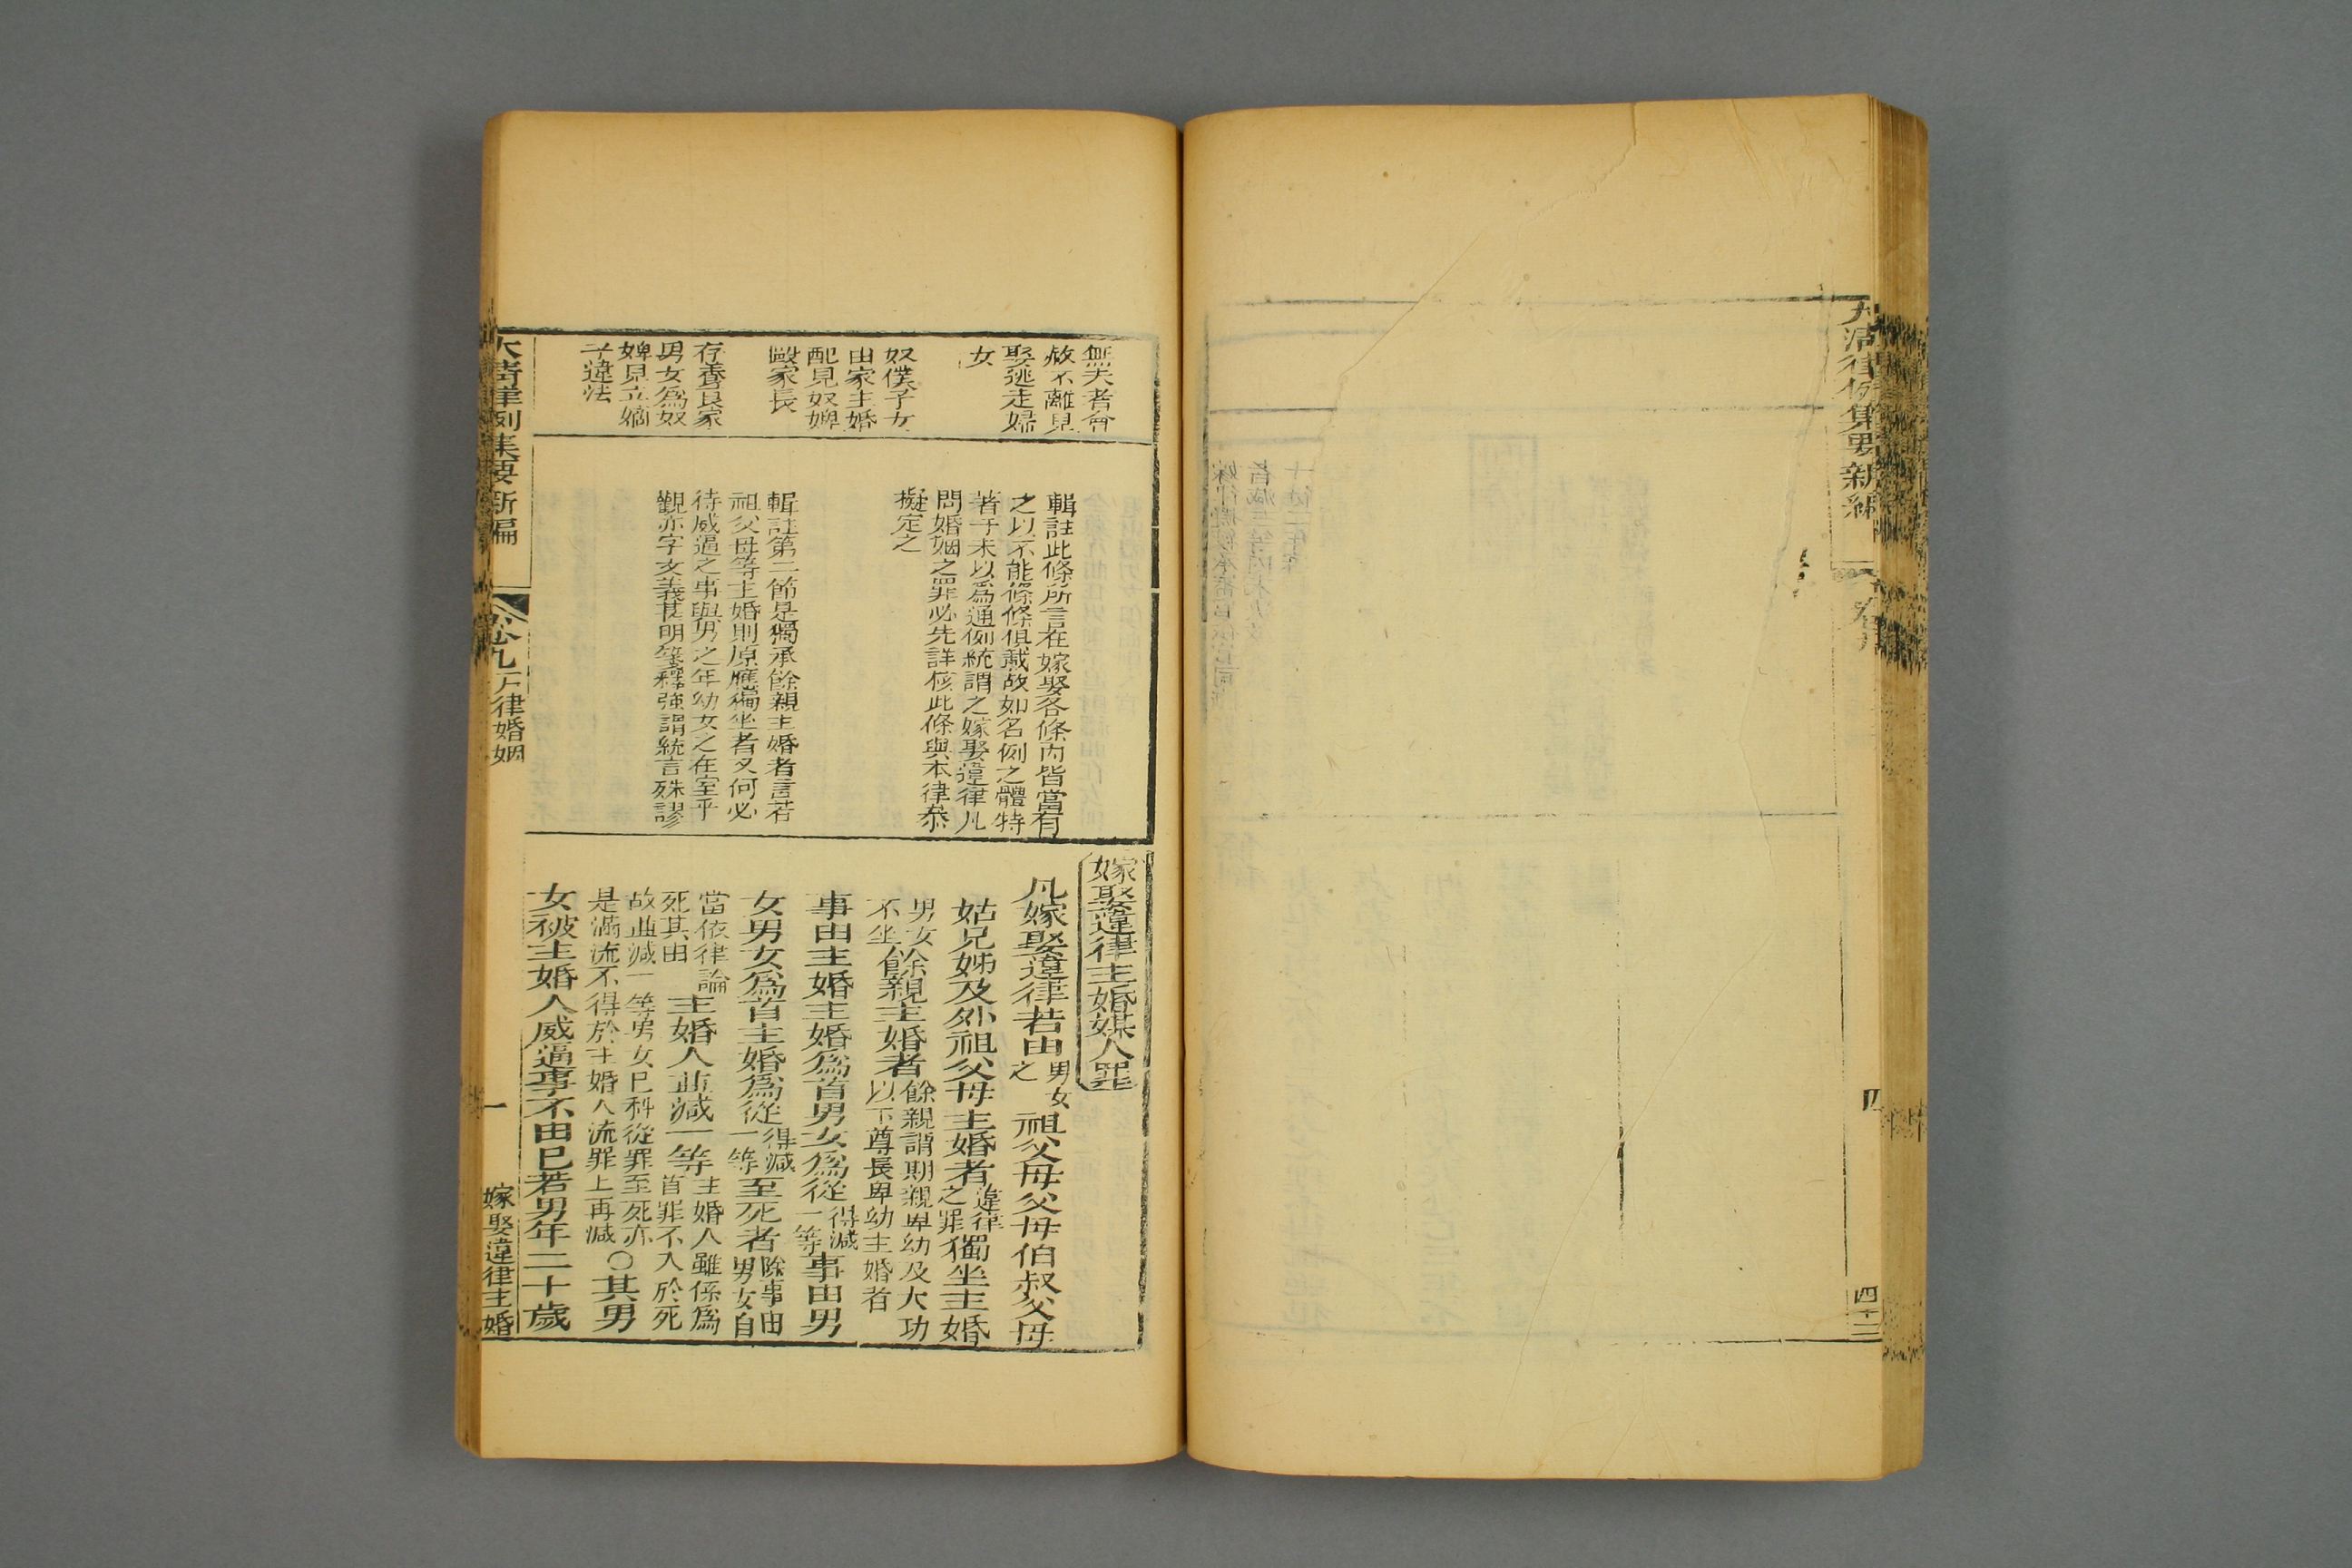 大清律例集要新編
卷九
四
四十三
無夫者會
赦不離見
娶逃走婦
女
奴僕子女
由家主婚
配見奴婢
毆家長
存養良家
男女為奴
婢見立嫡
子違法
輯註此條所言在嫁娶各條內皆當有
之以不能條條俱載故如名例之體特
著于末以為通例統謂之嫁娶違律凡
問婚姻之罪必先詳核此條與本律叅
擬定之
輯註第二節是獨承餘親主婚者言若
祖父母等主婚則原應獨坐者又何必
待威逼之事與男之年幼女之在室乎
觀亦字文義甚明箋釋強謂統言殊謬
嫁娶違律主婚媒人罪
凡嫁娶違律若由男女之祖父母父母伯叔父母
姑兄姊及外祖父母主婚者違律之罪獨坐主婚
男女不坐餘親主婚者餘親謂期親卑幼及大功以下尊長卑幼主婚者
事由主婚主婚為首男女為從得減一等事由男
女男女為首主婚為從得減一等至死者除事由男女自
當依律論死其由主婚人並減一等主婚人雖係為首罪不入於死
故並減一等男女已科從罪至死亦是滿流不得於主婚人流罪上再減○其男
女被主婚人威逼事不由已若男年二十歲
大清律例集要新編
卷九戶律婚姻
一
嫁娶違律主婚